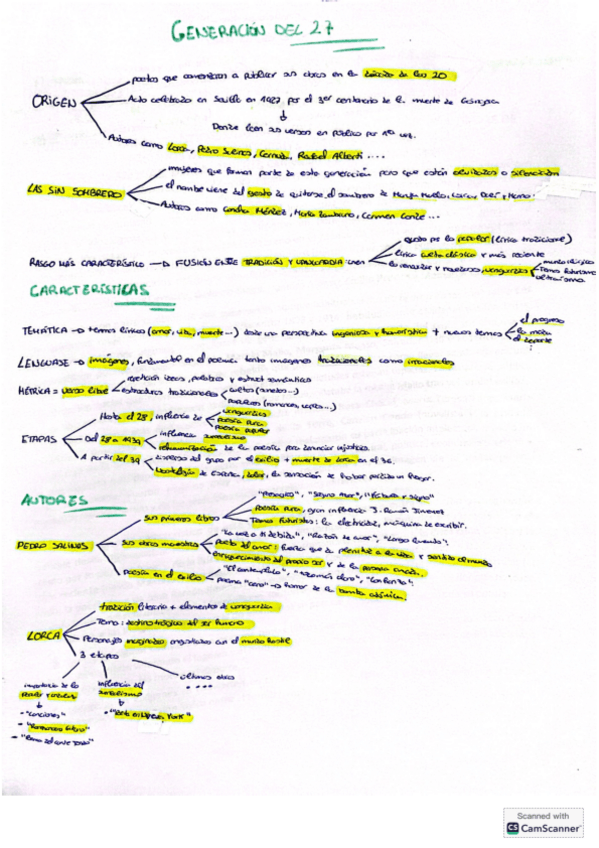 GENERACIÓN DEL 27
poetas que comenzaron a publicar sus obras en la década de los 20
ORIGEN
Acto celebrado en Sevilla en 1927 por el 3er centenario de la muerte de Góngora
Donde leen sus versos en público por 1ª vez.
Autores como Lorca, Pedro Salinas, Cernuda, Rafael Alberti ....
mujeres que forman parte de esta generación pero que están olvidadas o
LAS SIN SOMBRERO
el nombre viene del gesto de quitarse el sombrero de Maruja Mallo,
Autoras como Concha Méndez, María Zambrano, Carmen Conde ...
gusto por lo popular (lírica tradicional)
RASGO MÁS CARACTERÍSTICO → FUSIÓN ENTRE TRADICIÓN Y VANGUARDIA:
lírica culta clásica y más reciente
vanguardias
futurismo
ultraísmo
CARACTERÍSTICAS
el progreso
TEMÁTICA → temas líricos (amor, vida, muerte...) desde una perspectiva ingeniosa y humorística + nuevos temos
la moda
el deporte
LENGUAJE → imágenes, fundamental en el poema tanto imágenes tradicionales como irracionales
repetición ideas, palabras y estruct semánticas
MÉTRICA = verso libre
estructuras tradicionales
cultas (sonetos...)
populares (romances, ...)
Hasta el 28, influencia de
vanguardias
poesía pura
poesía popular
ETAPAS
Del 28 a 1939
influencia surrealismo
rehumanización de la poesía para denunciar injusticias
A partir del 39
dispersa del grupo por el exilio + muerte de Lorca en el 36.
Nostalgia de España, dolor, la sensación de haber perdido un hogar.
AUTORES
"Presagios", "Seguro Azar", "Fábula y Signo"
sus primeros libros
Poesía pura, gran influencia J. Ramón Jiménez
Temas futuristas: la electricidad, máquina de escribir.
PEDRO SALINAS
sus obras maestras
"La voz a ti debida", "Razón de amor", "Largo lamento".
poeta del amor: fuerza que da plenitud a la vida y sentido al mundo
enriquecimiento del propio ser y de la persona amada.
poesía en el exilio
"El contemplado", "Todo más claro", "Confianza".
poema "Cero" → horror de la bomba atómica.
tradición literaria + elementos de vanguardia
Tema: destino trágico del ser humano
LORCA
Personajes marginados angustiados con el mundo hostil
3 etapas
importancia de lo
influencia del surrealismo
últimas obras
....
- "Canciones"
- "Poeta en Nueva York"
- "Romancero Gitano"
- "Poema del cante jondo"
Scanned with
CS CamScanner